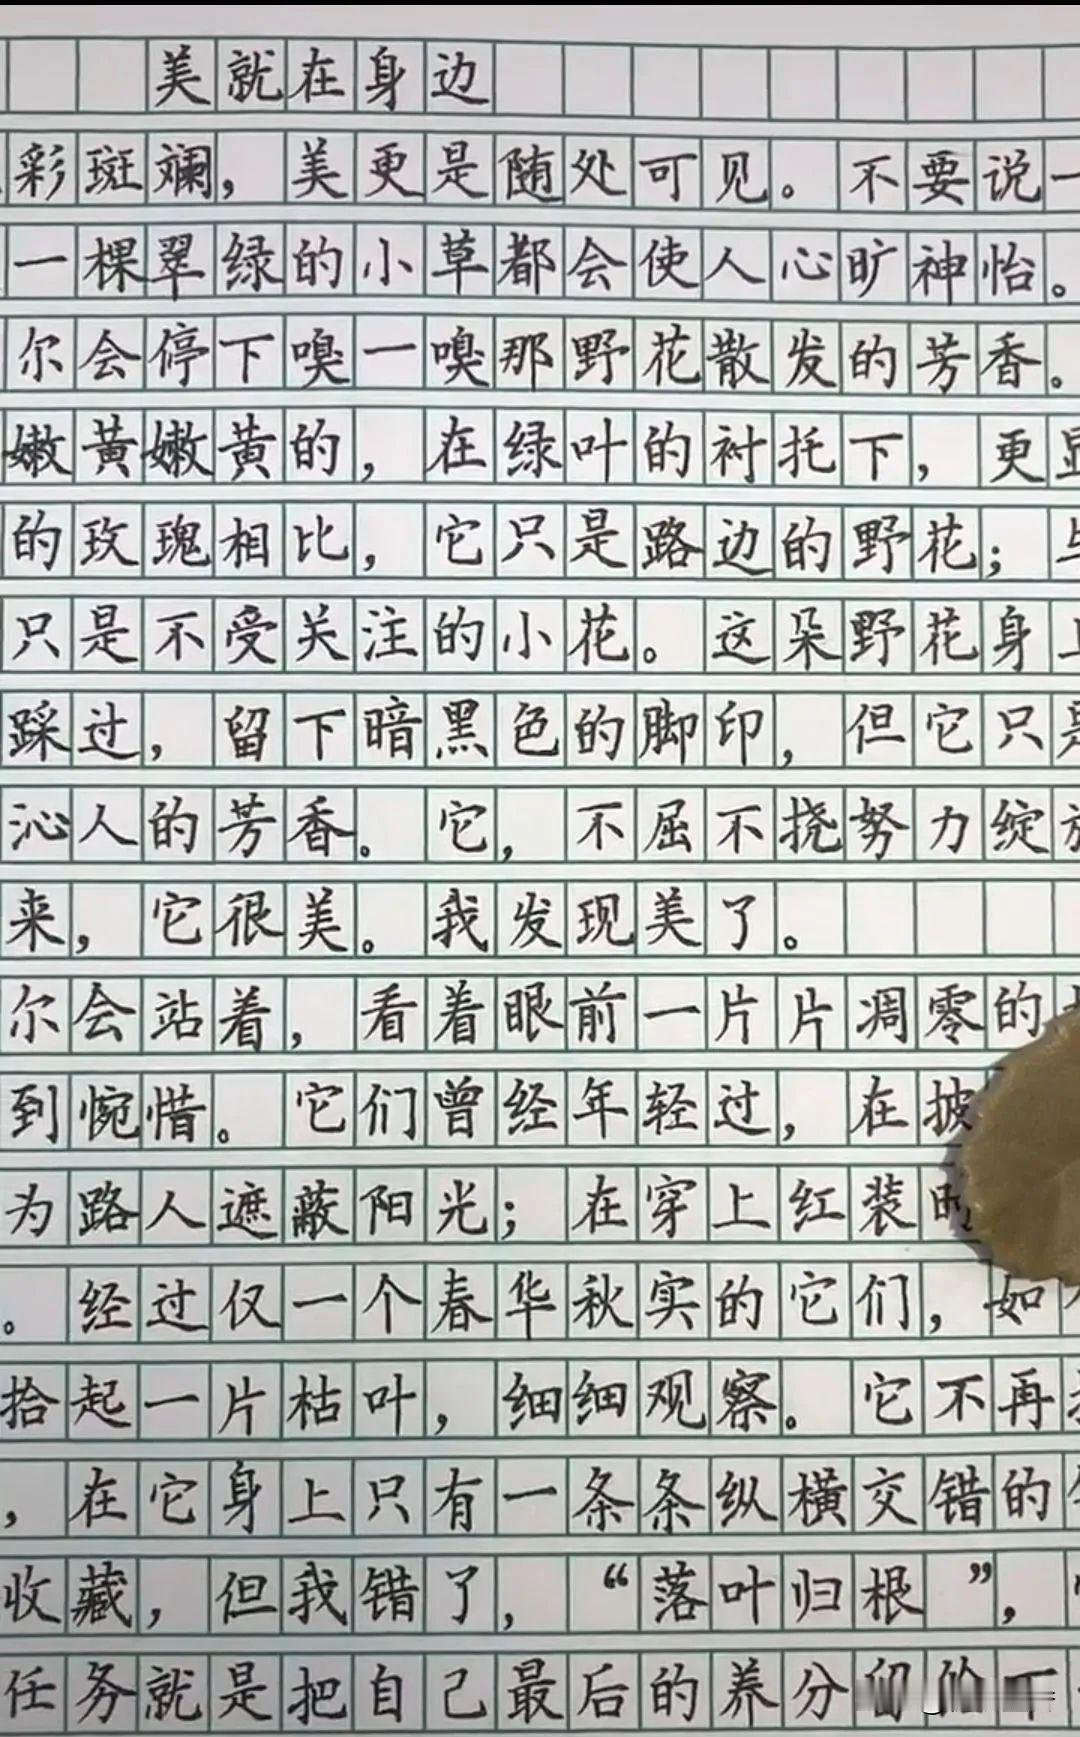 美就在身边
彩斑斓，美更是随处可见。不要说一
一棵翠绿的小草都会使人心旷神怡。
尔会停下嗅一嗅那野花散发的芳香。
嫩黄嫩黄的，在绿叶的衬托下，更显
的玫瑰相比，它只是路边的野花；与
只是不受关注的小花。这朵野花身上
踩过，留下暗黑色的脚印，但它只是
沁人的芳香。它，不屈不挠努力绽放
来，它很美。我发现美了。
尔会站着，看着眼前一片片凋零的
到惋惜。它们曾经年轻过，在披
为路人遮蔽阳光；在穿上红装时
。经过仅一个春华秋实的它们，如
拾起一片枯叶，细细观察。它不再
，在它身上只有一条条纵横交错的
收藏，但我错了，“落叶归根”，
任务就是把自己最后的养分